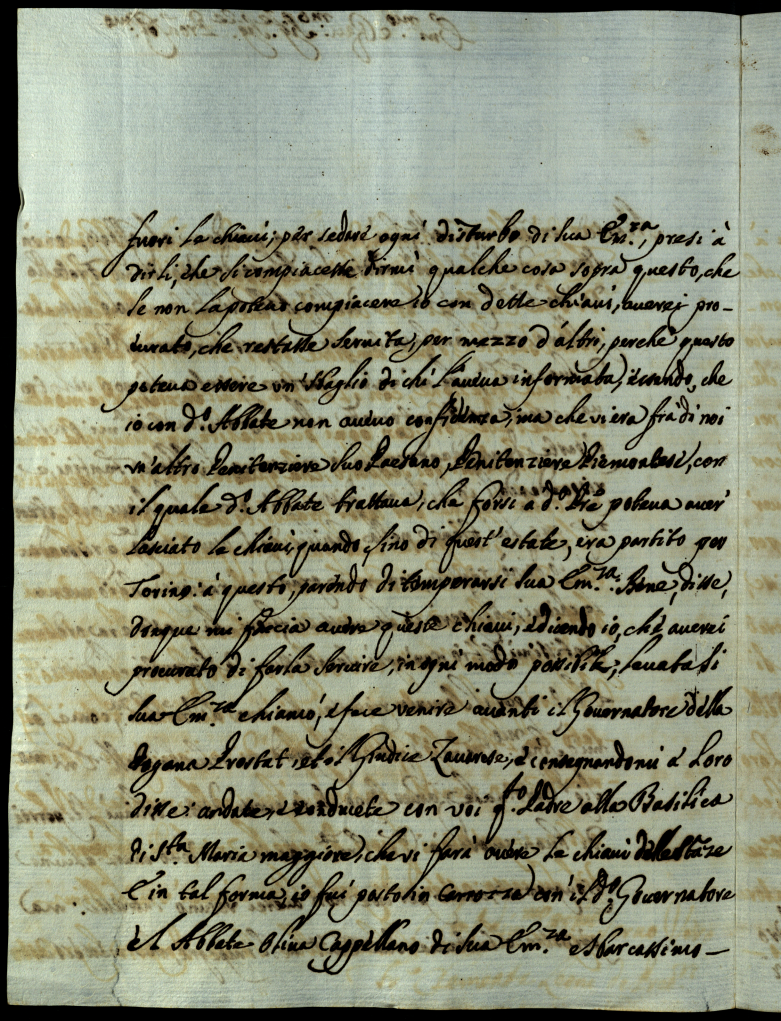 fuori le chiavi; per sedare ogni disturbo di sua Em.za, presi à
dirli, che si compiacesse dirmi qualche cosa sopra questo, che
se non la potevo compiacere io con dette chiavi, averei pro-
curato, che restasse servita, per mezzo d'altri, perche questo
poteva essere un sbaglio di chi l'aveva informata, che
io con d.o Abbate non avevo confidenza, ma che vi era frà di noi
un'altro Penitenziere suo Paesano, Penitenziere Piemontese, con
il quale d.o Abbate trattava, che forsi à d.o Pre poteva aver
lasciato le chiavi, quando, sino di quest'estate, era partito per
Torino: à questo, parendo di temperarsi sua Em.za: Bene, disse,
dunque mi faccia avere queste chiavi, è dicendo io, che averei
procurato di farla servire, in ogni modo possibile, levatasi
sua Em.za chiamò, è fece venire avanti il Governatore della
Dogana Prostat, et il Giudice Zavarese, è consegnandomi à Loro
disse: andate, è conducete con voi q.to Padre alla Basilica
di S.ta Maria maggiore, che vi farà avere le chiavi delle stanze
È in tal forma, io fui posto in Carrozza con il d.o Governatore
è l Abbate Oliva Cappellano di sua Em.za e sbarcassimo—